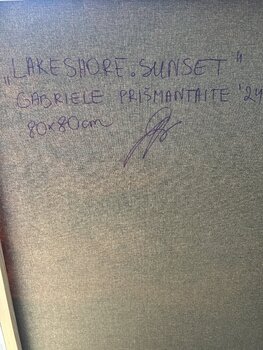 „LAKESHORE.SUNSET"
GABRIELE PRIŠMANTAITE '24
80x80cm